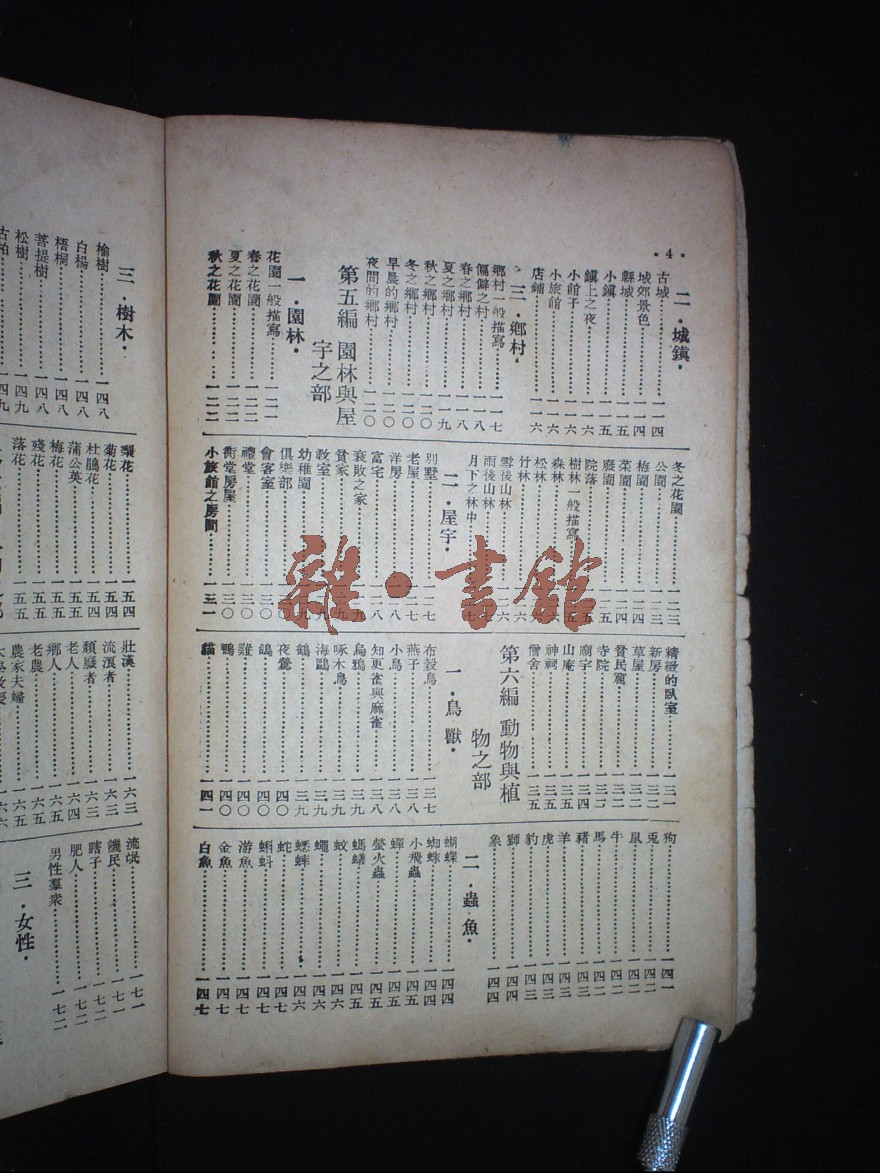 ·4·
二·城鎮·
古城…………一一四
城郊景色…………一一四
縣城…………一一五
小鎮…………一一五
鎮上之夜…………一一六
小館子…………一一六
小旅館…………一一六
店鋪…………一一六
三·鄉村·
鄉村一般描寫…………一一七
偏僻之村…………一一八
春之鄉村…………一一八
夏之鄉村…………一一九
秋之鄉村…………一二〇
冬之鄉村…………一二〇
早晨的鄉村…………一二〇
夜間的鄉村…………一二〇
第五編 園林與屋
宇之部
一·園林·
花園一般描寫…………一二一
春之花園…………一二二
夏之花園…………一二二
秋之花園…………一二二
冬之花園…………一二三
公園…………一二三
梅園…………一二四
菜園…………一二四
廢園…………
院落…………
樹林一般描寫…………
森林…………
松林…………
竹林…………
雪後山林…………
雨後山林…………
月下之林中…………
二·屋宇·
別墅…………一二七
老屋…………一二七
洋房…………一二八
富宅…………一二八
衰敗之家…………
貧家…………
教室…………
幼稚園…………
俱樂部…………
會客室…………一三〇
禮堂…………一三〇
衖堂房屋…………一三〇
小旅館之房間…………一三一
精緻的臥室…………一三一
新房…………一三一
草屋…………一三二
貧民窟…………一三二
寺院…………一三二
廟宇…………一三四
山庵…………一三五
神祠…………一三五
僧舍…………一三五
第六編 動物與植
物之部
一·鳥獸·
布穀鳥…………一三七
燕子…………一三八
小鳥…………一三八
知更雀與麻雀…………一三八
烏鴉…………一三九
啄木鳥…………一三九
海鷗…………一三九
鶴…………一三九
夜鶯…………一四〇
鴿…………一四〇
雞…………一四〇
鴨…………一四〇
貓…………一四一
狗…………一四一
兎…………一四二
鼠…………一四二
牛…………一四二
馬…………一四二
豬…………一四三
羊…………一四三
虎…………一四三
豹…………一四三
獅…………一四四
象…………一四四
二·蟲魚·
蝴蝶…………一四四
蜘蛛…………一四四
小飛蟲…………一四五
蟬…………一四五
螢火蟲…………一四五
螞蟻…………一四五
蚊…………一四六
蠅…………一四六
蟋蟀…………一四六
蛇…………一四七
蝌蚪…………一四七
游魚…………一四七
金魚…………一四七
白魚…………一四七
三·樹木·
榆樹…………一四八
白楊…………一四八
梧桐…………一四八
菩提樹…………一四八
松樹…………一四九
古柏…………一四九
梨花…………一五四
菊花…………一五四
杜鵑花…………一五四
蒲公英…………一五五
梅花…………一五五
殘花…………一五五
落花…………一五五
壯漢…………一六三
流浪者…………一六三
頹廢者…………一六三
老人…………一六四
鄉人…………一六五
老農…………一六五
農家夫婦…………一六五
流氓…………一七一
饑民…………一七一
瞎子…………一七二
肥人…………一七二
男性羣衆…………一七二
三·女性·
雜·書館